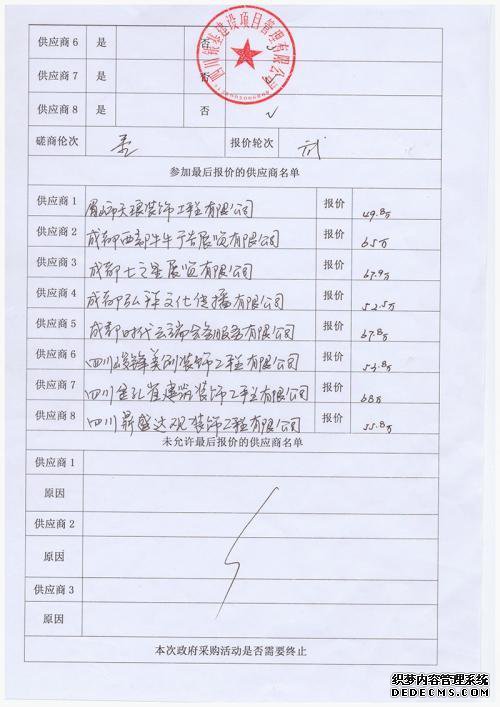 供应商 6 是 否
供应商 7 是 否
供应商 8 是 否 ✓
四川银基建设项目管理有限公司
磋商伦次 壹 报价轮次 贰
参加最后报价的供应商名单
供应商 1 眉山市天琅装饰工程有限公司 报价 49.8万
供应商 2 成都西部牛牛广告展览有限公司 报价 65万
供应商 3 成都七之星展览有限公司 报价 67.9万
供应商 4 成都弘祥文化传播有限公司 报价 52.5万
供应商 5 成都时代云端会务服务有限公司 报价 67.8万
供应商 6 四川 装饰工程有限公司 报价 53.8万
供应商 7 四川金孔雀建筑装饰工程有限公司 报价 68万
供应商 8 四川鼎盛达观装饰工程有限公司 报价 55.8万
未允许最后报价的供应商名单
供应商 1
原因
供应商 2
原因
供应商 3
原因
本次政府采购活动是否需要终止
织梦内容管理系统
DEDECMS.COM